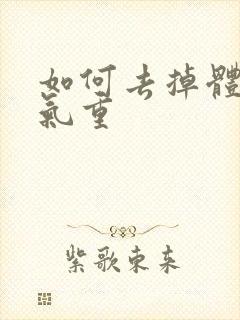 如何去掉體
氣重
紫歌東来